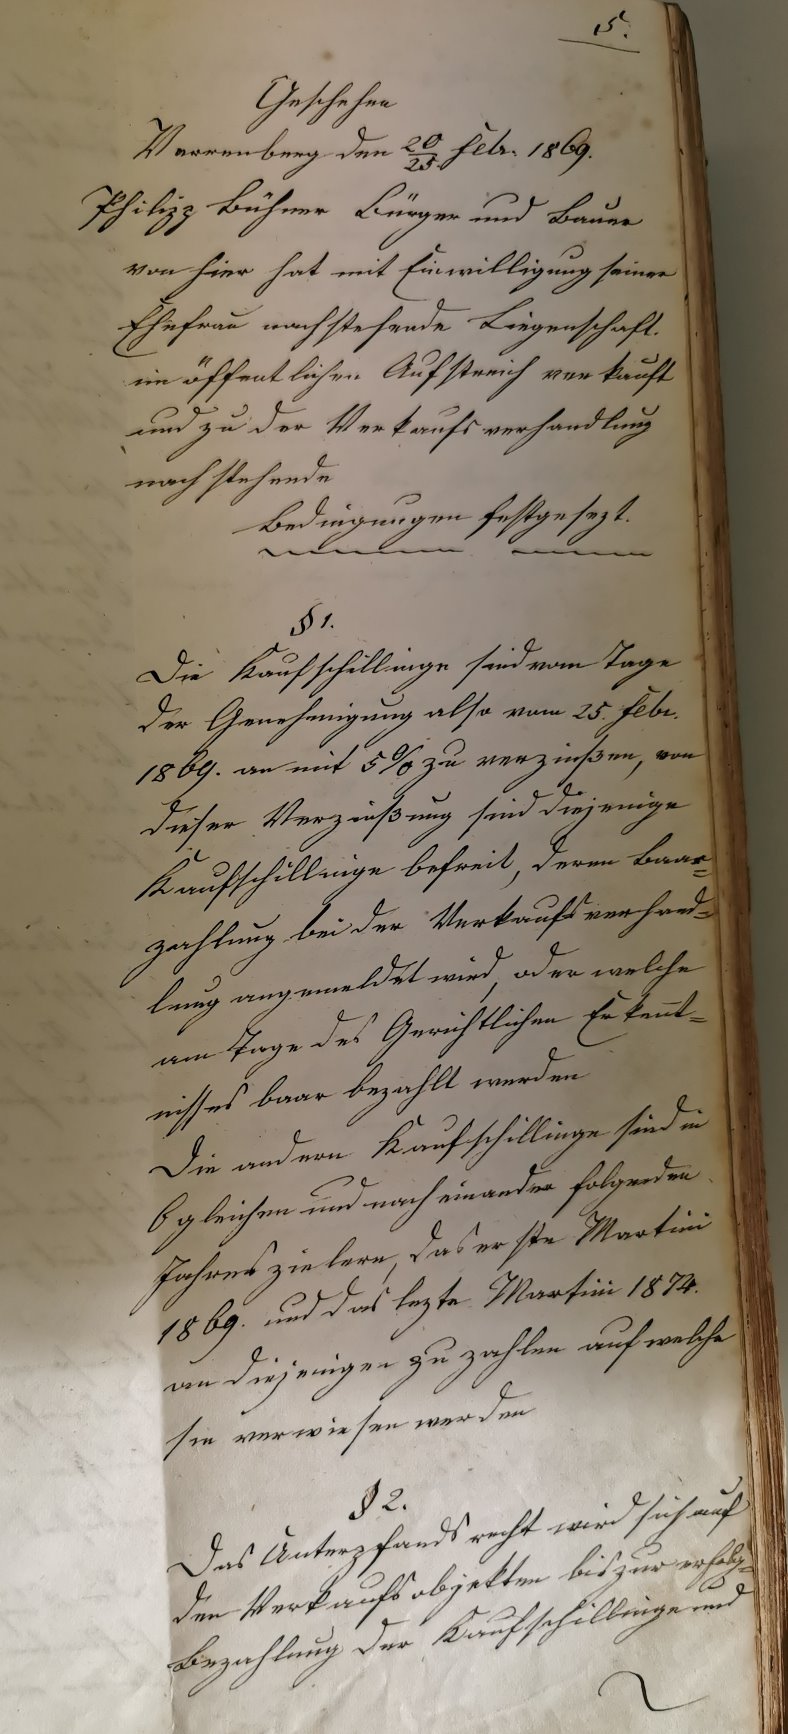 5.
Geschehen
Verrenberg den 20/25 Febr. 1869.
Philipp Bühner Bürger und Bauer
von hier hat mit Einwilligung seiner
Ehefrau nachstehende Liegenschaft.
im öffentlichen Aufstreich verkauft
und zu der Verkaufsverhandlung
nachstehende
Bedingungen festgesezt.
§ 1.
Die Kaufschillinge sind vom Tage
der Genehmigung also vom 25. Febr.
1869. an mit 5 % zu verzinßen, von
dieser Verzinßung sind diejenige
Kaufschillinge befreit, deren Baar=
zahlung bei der Verkaufsverhand=
lung angemeldet wird, oder welche
am Tage des Gerichtlichen Erkennt=
nisses baar bezahlt werden
Die andern Kaufschillinge sind in
6 gleichen und nach einander folgenden
Jahreszielern, das erste Martini
1869. und das lezte Martini 1874.
an diejenigen zu zahlen auf welche
sie verwiesen werden
§ 2.
Das Unterpfandsrecht wird sich auf
den Verkaufsobjekten bis zur erfolg=
Bezahlung der Kaufschillinge und